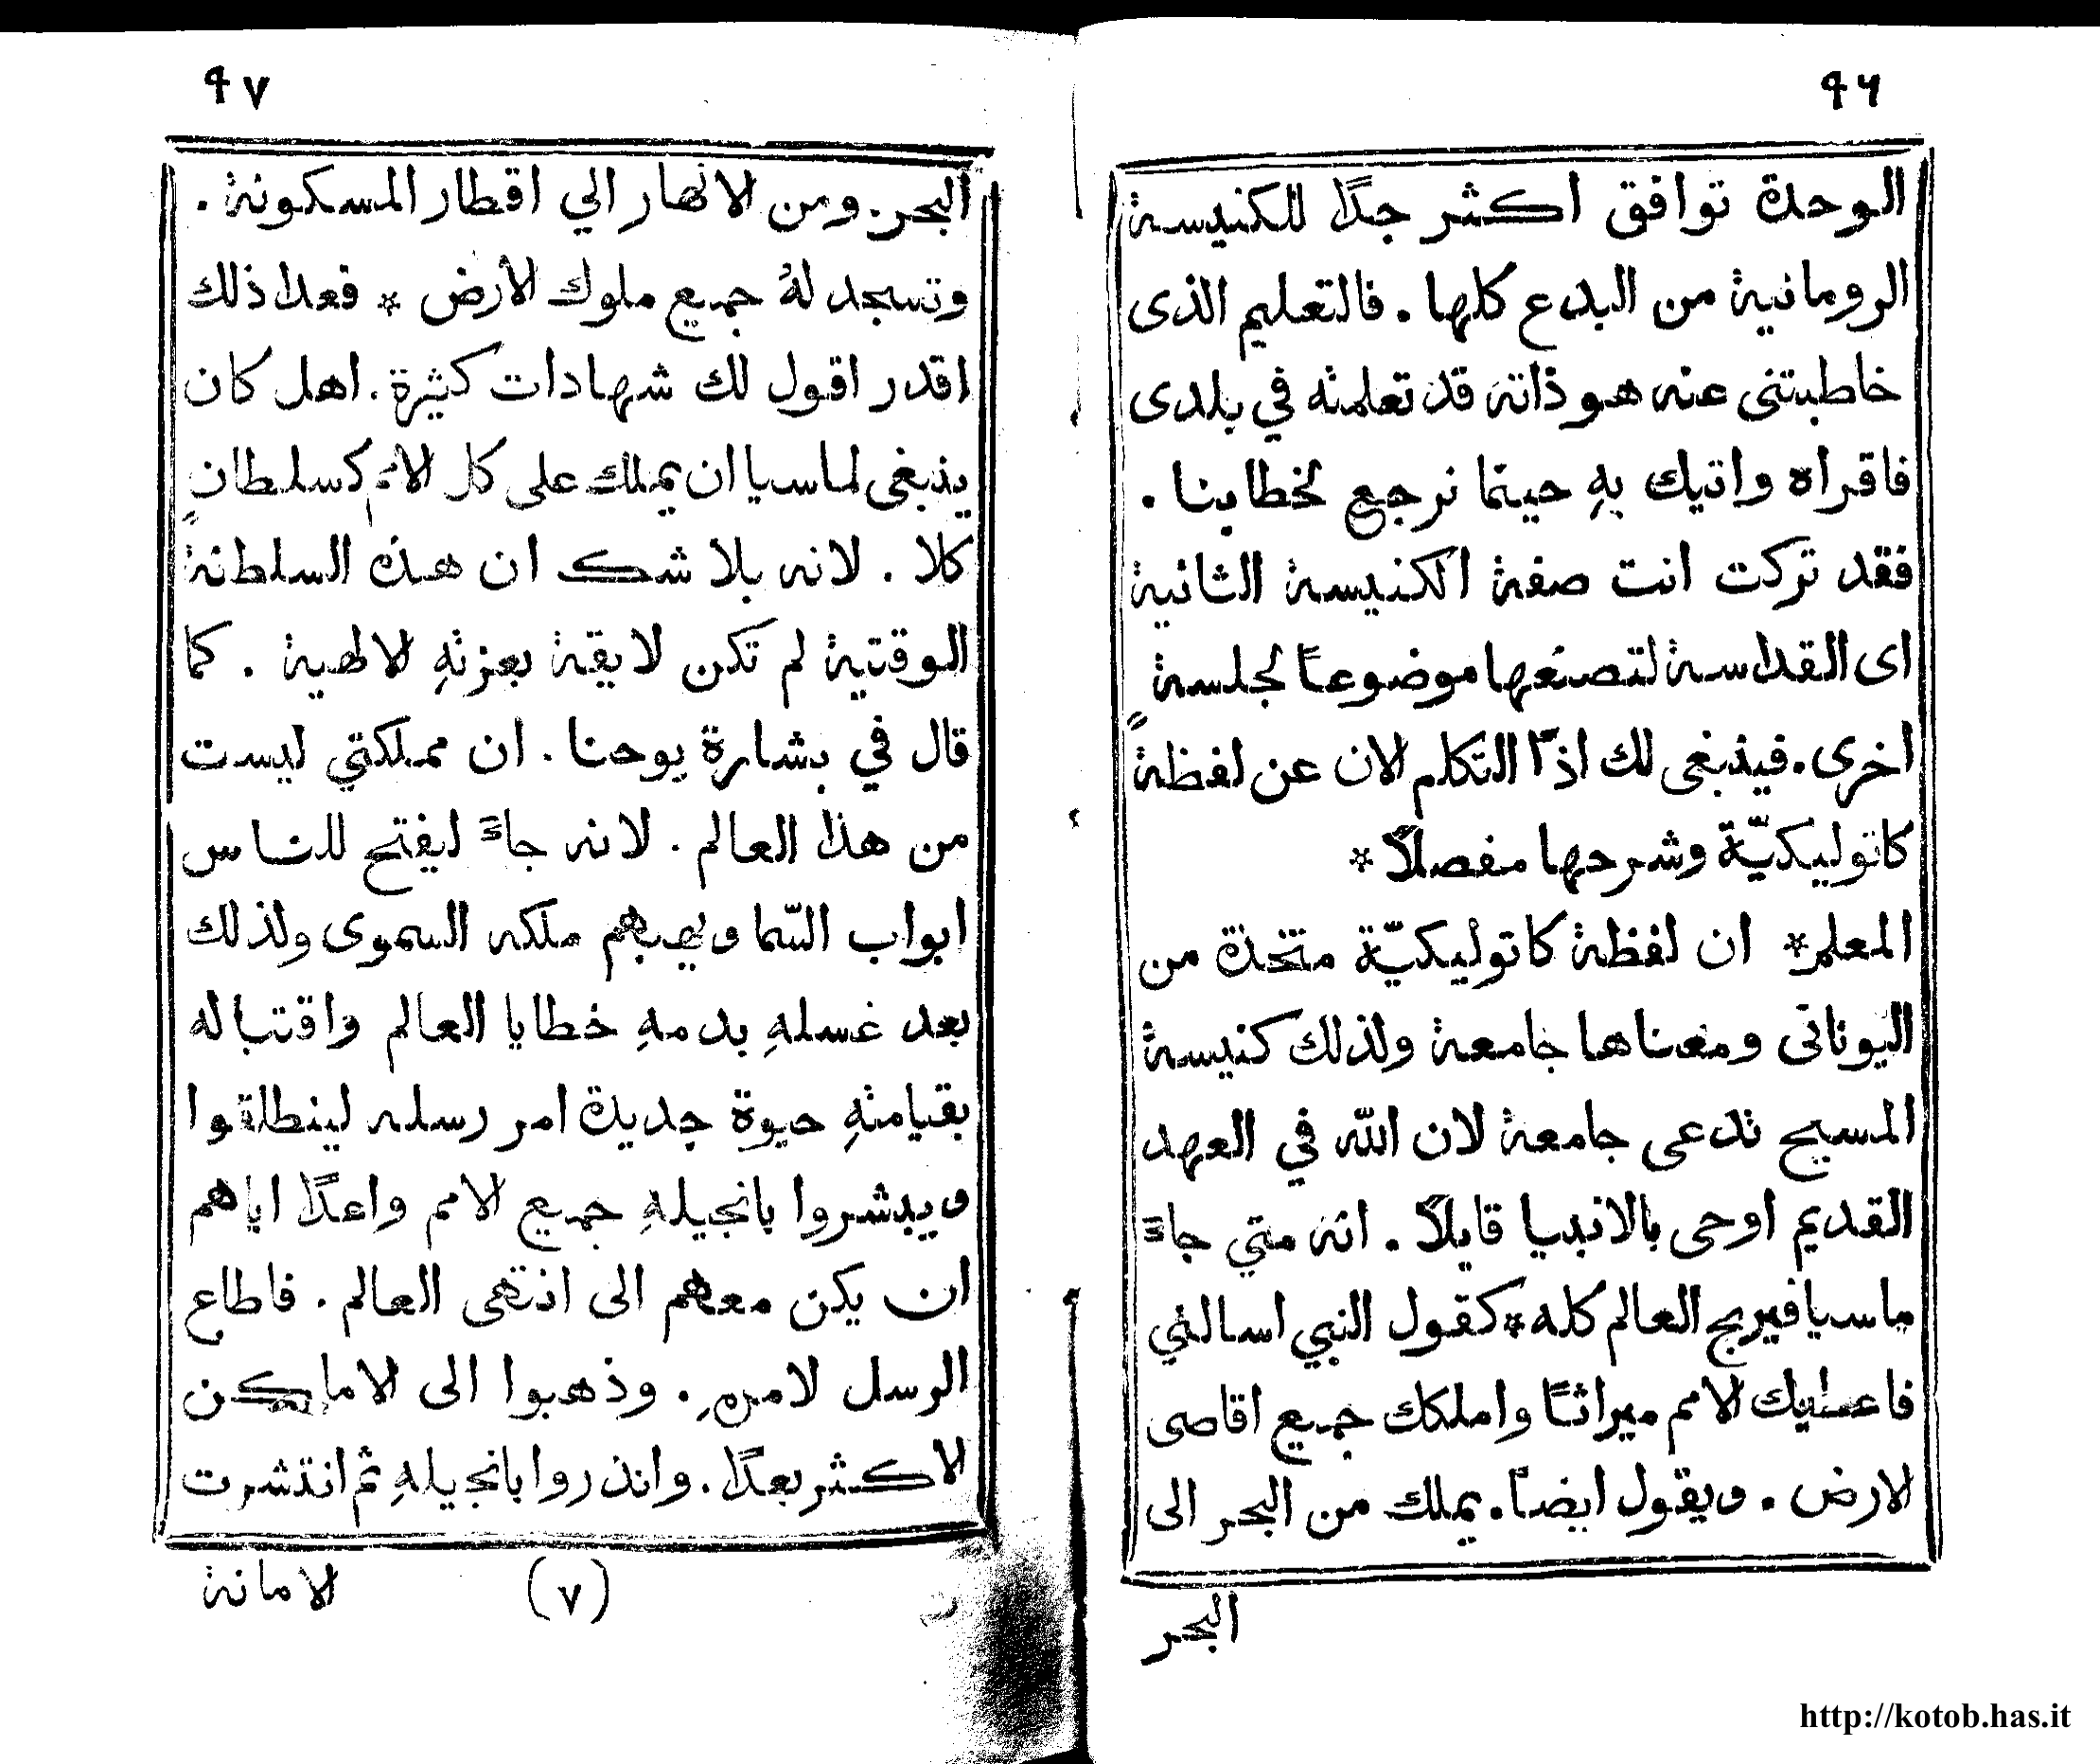 ٩٦
الوحدة توافق اكثر جدًا للكنيسة
الرومانية من البدع كلها . فالتعليم الذى
خاطبتنى عنه هو ذاته قد تعلمته في بلدى
فاقراه واتيك بهِ حينما نرجع لخطابنا .
فقد تركت انت صفة الكنيسة الثانية
اى القداسة لتصنعها موضوعًا لجلسةٍ
اخرى . فينبغى لك اذًا التكلم الان عن لفظة
كاتوليكيّة وشرحها مفصلاً *
المعلم * ان لفظة كاتوليكيّة متخذة من
اليونانى ومعناها جامعة ولذلك كنيسة
المسيح تدعى جامعة لان الله في العهد
القديم اوحى بالانبيا قايلاً . انه متي جاءَ
ماسيا فيربح العالم كله * كقول النبي اسالني
فاعطيك الامم ميراثًا واملكك جميع اقاصى
الارض . ويقول ايضًا . يملك من البحر الى
البحر
٩٧
البحر . ومن الانهار الي اقطار المسكونة .
وتسجد لهُ جميع ملوك الارض * فعدا ذلك
اقدر اقول لك شهادات كثيرة . اهل كان
ينبغى لماسيا ان يملك على كل الامم كسلطانٍ
كلا . لانه بلا شك ان هذه السلطنة
الوقتية لم تكن لايقة بعزتهِ الالهية . كما
قال في بشارة يوحنا . ان مملكتي ليست
من هذا العالم . لانه جاءَ ليفتح للناس
ابواب السّما ويهبهم ملكه السموى ولذلك
بعد غسلهِ بدمهِ خطايا العالم واقتباله
بقيامتهِ حيوة جديدة امر رسله لينطلقوا
ويبشروا بانجيلهِ جميع الامم واعدًا اياهم
ان يكن معهم الى انتهى العالم . فاطاع
الرسل لامرهِ . وذهبوا الى الاماكن
الاكثر بعدًا . وانذروا بانجيلهِ ثم انتشرت
(٧)
الامانة
http://kotob.has.it